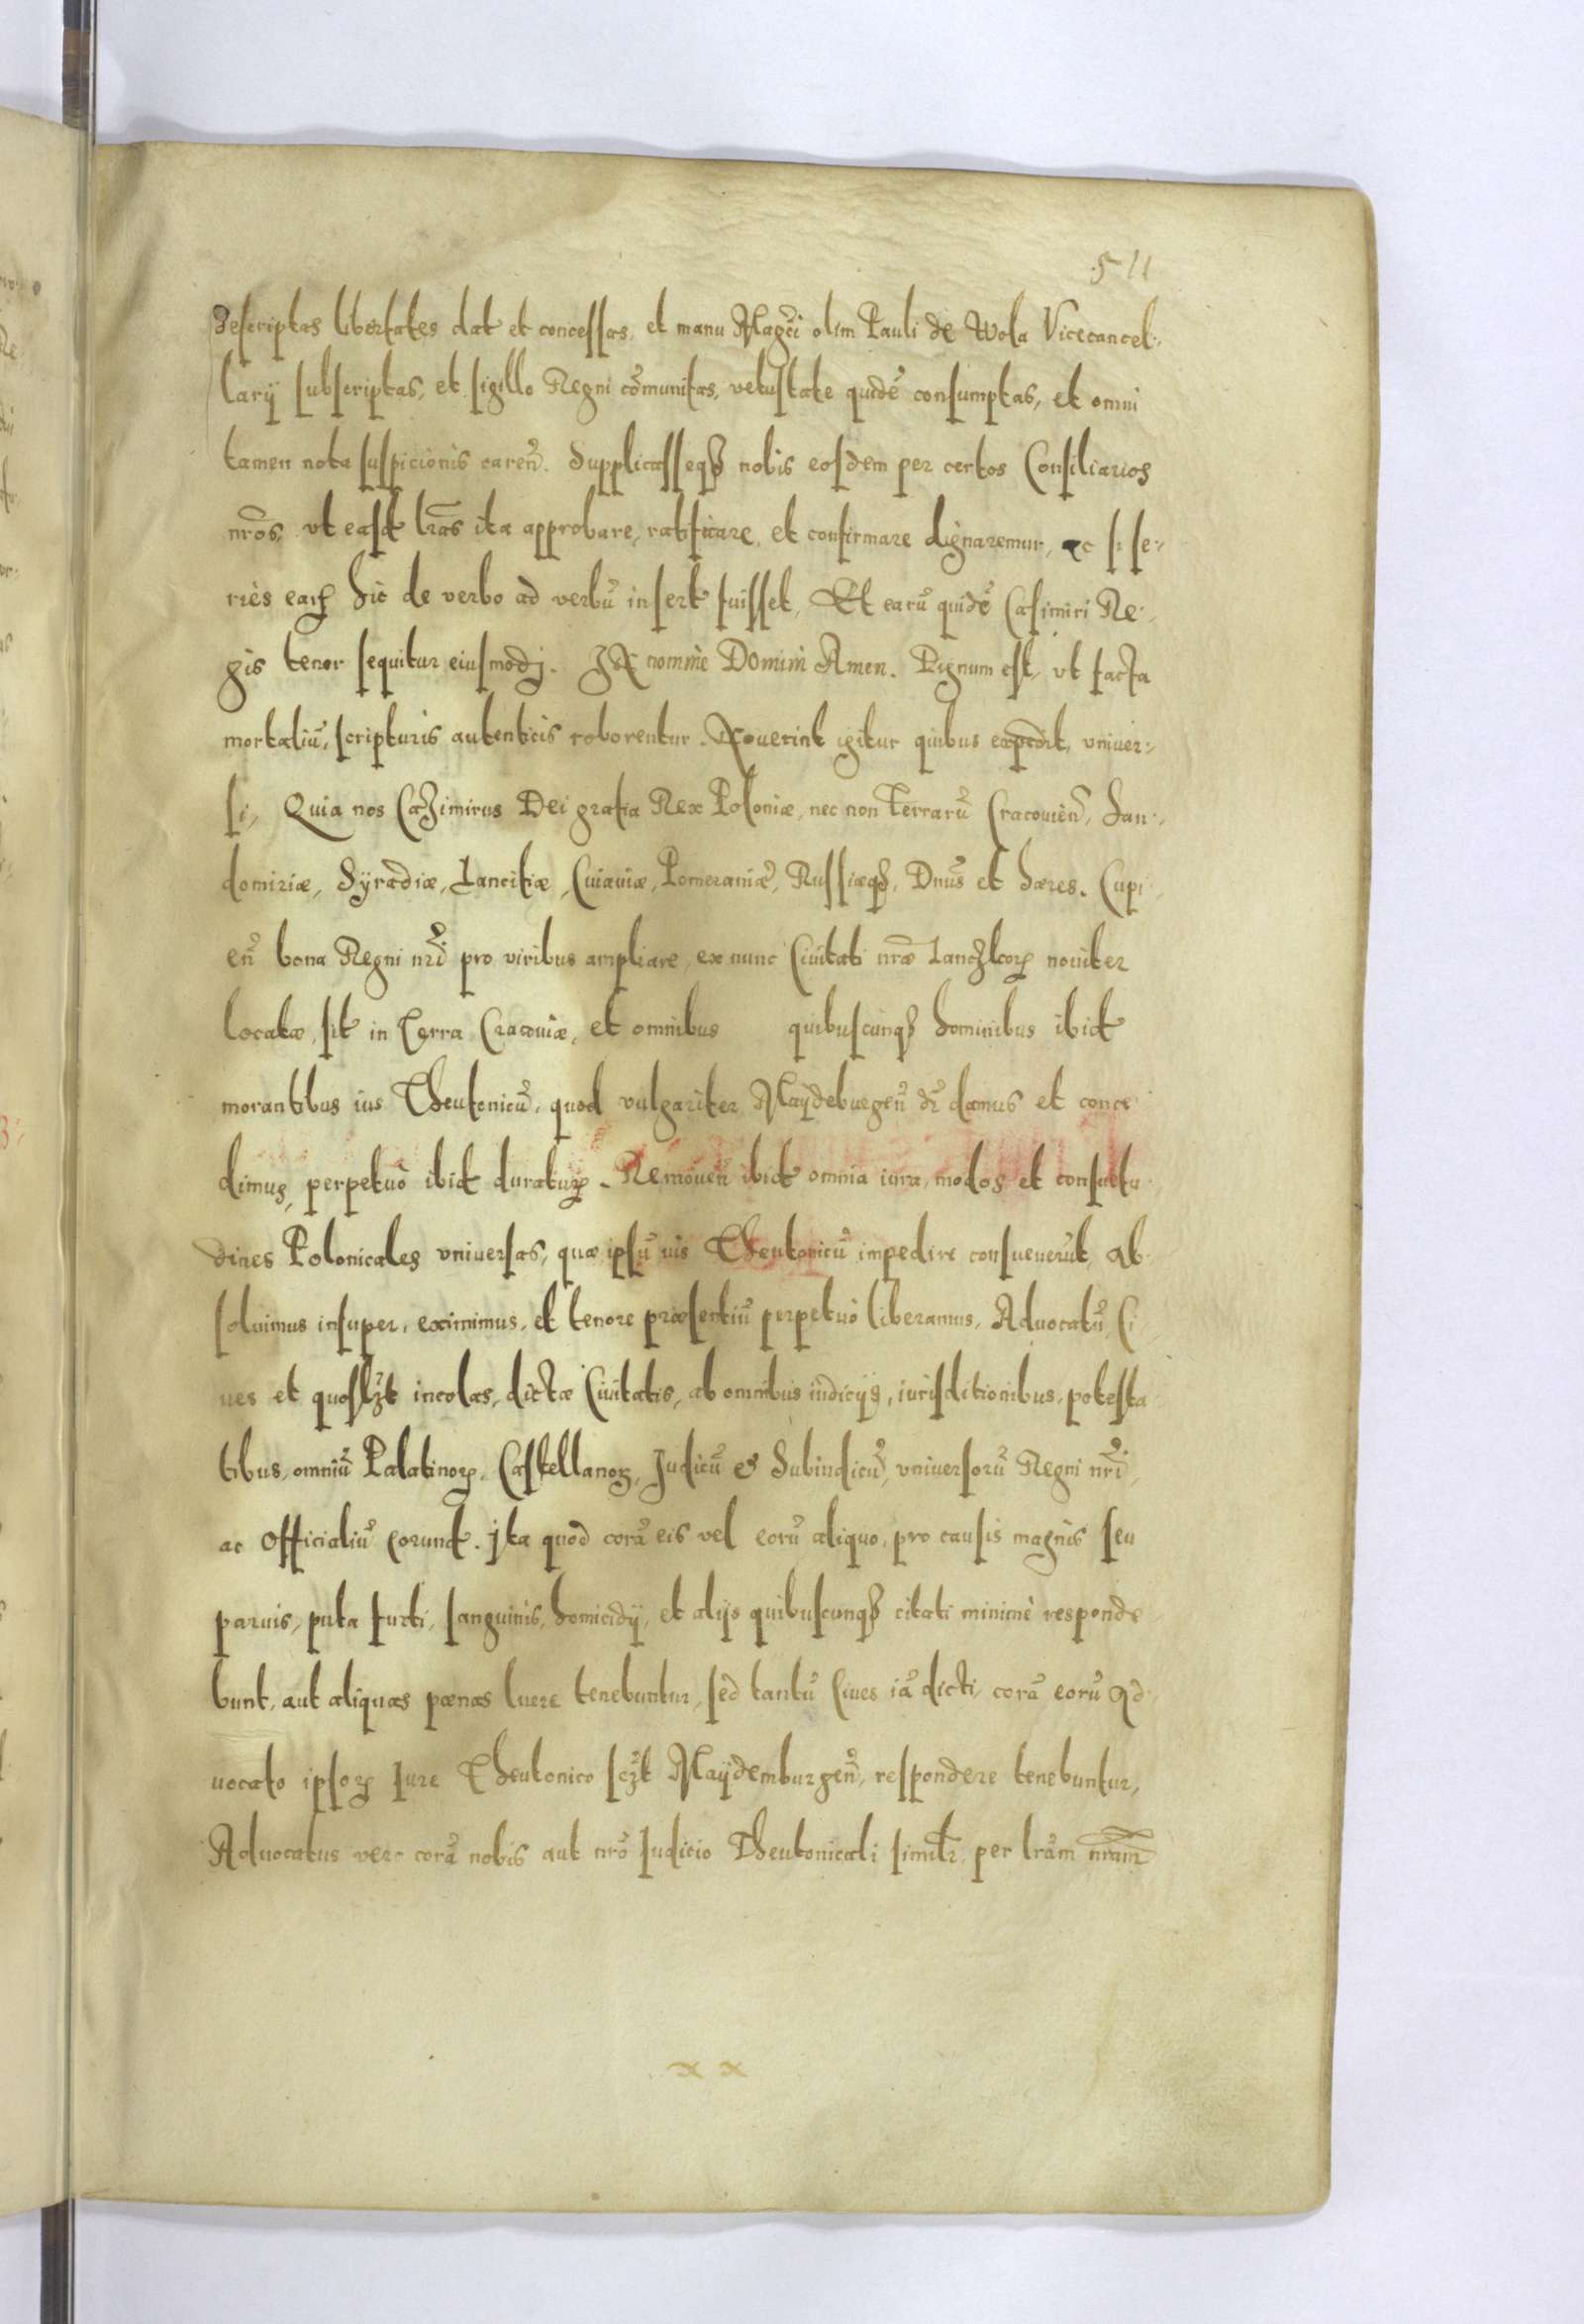 511
descriptas libertates dat et concessas, et manu Magci olim Pauli de Wola Vicecancel:,
larij subscriptas, et sigillo Regni comunitas, vetustate quidē consumptas, et omni
tamen nota suspicionis caren̄. Supplicasseqȝ nobis eosdem per certos Consiliarios
nr̄os, vt easd̄ lr̄as ita approbare, ratificare, et confirmare dignaremur, ac si se:,
ries earꝝ hic de verbo ad verbū insert fuisset, Et earū quidē Casimiri Re:,
gis tenor sequitur eiusmodj. IN nomine Domini Amen. Dignum est, vt facta
mortaliū, scripturis autenticis roborentur. Nouerint igitur quibus expedit, vniuer:,
si, Quia nos Cazimirus Dei gratia Rex Poloniæ, nec non Terrarū Cracouien̄, San:,
domiriæ, Syradiæ, Lancitiæ, Cuiauiæ, Pomeraniæ, Russiæqȝ, Dn̄us et hæres. Cupi,
en̄ bona Regni nr̄i pro viribus ampliare, ex nunc Ciuitati nr̄æ Lanczkorꝝ nouiter
locatæ, sit in Terra Cracouiæ, et omnibus quibuscunqȝ hominibus ibid̄
morantibus ius Theutonicū, quod vulgariter Maydeburgen̄ dr̄ damus et conce
dimus, perpetuò ibid̄ duraturꝝ. Remouen̄ ibid̄ omnia iura, modos et consuetu
dines Polonicales vniuersas, quæ ipsū ius Theutonicū impedire consueuerūt, Ab
soluimus insuper, eximimus, et tenore præsentiū perpetuò liberamus, Aduocatū, Ci
ues et quoslȝt incolas, dictæ Ciuitatis, ab omnibus iudicijs, iurisditionibus, potesta
tibus, omniū Palatinorꝝ, Castellanorꝝ, Judicū & Subiudicū, vniuersorū Regni nr̄i,
ac Officialiū eorund̄. Jta quod corā eis vel eorū aliquo, pro causis magnis seu
paruis, puta furti, sanguinis, homicidij, et alijs quibuscunqȝ citati minimè responde
bunt, aut aliquas pœnas luere tenebuntur, sed tantū Ciues iā dicti, corā eorū Ad
uocato ipsorꝝ Iure Theutonico sczt Maydemburgen̄, respondere tenebuntur,
Aduocatus vero corā nobis aut nr̄o Iudicio Theutonicali similr̄, per lr̄am nr̄am
x x